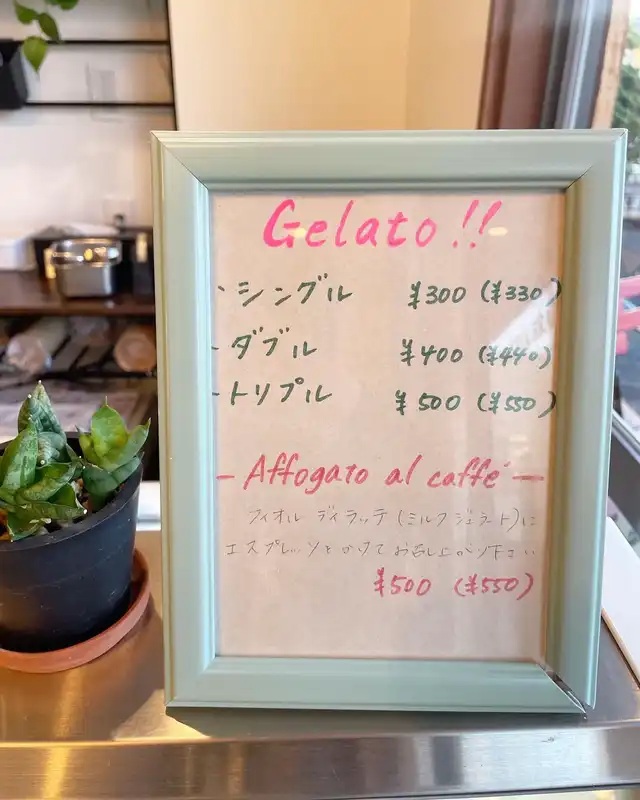 Gelato!!
・シングル ¥300 (¥330)
・ダブル ¥400 (¥440)
・トリプル ¥500 (¥550)
- Affogato al caffé -
フィオル ディラッテ(ミルクジェラート)に
エスプレッソをかけてお召し上がり下さい
¥500 (¥550)